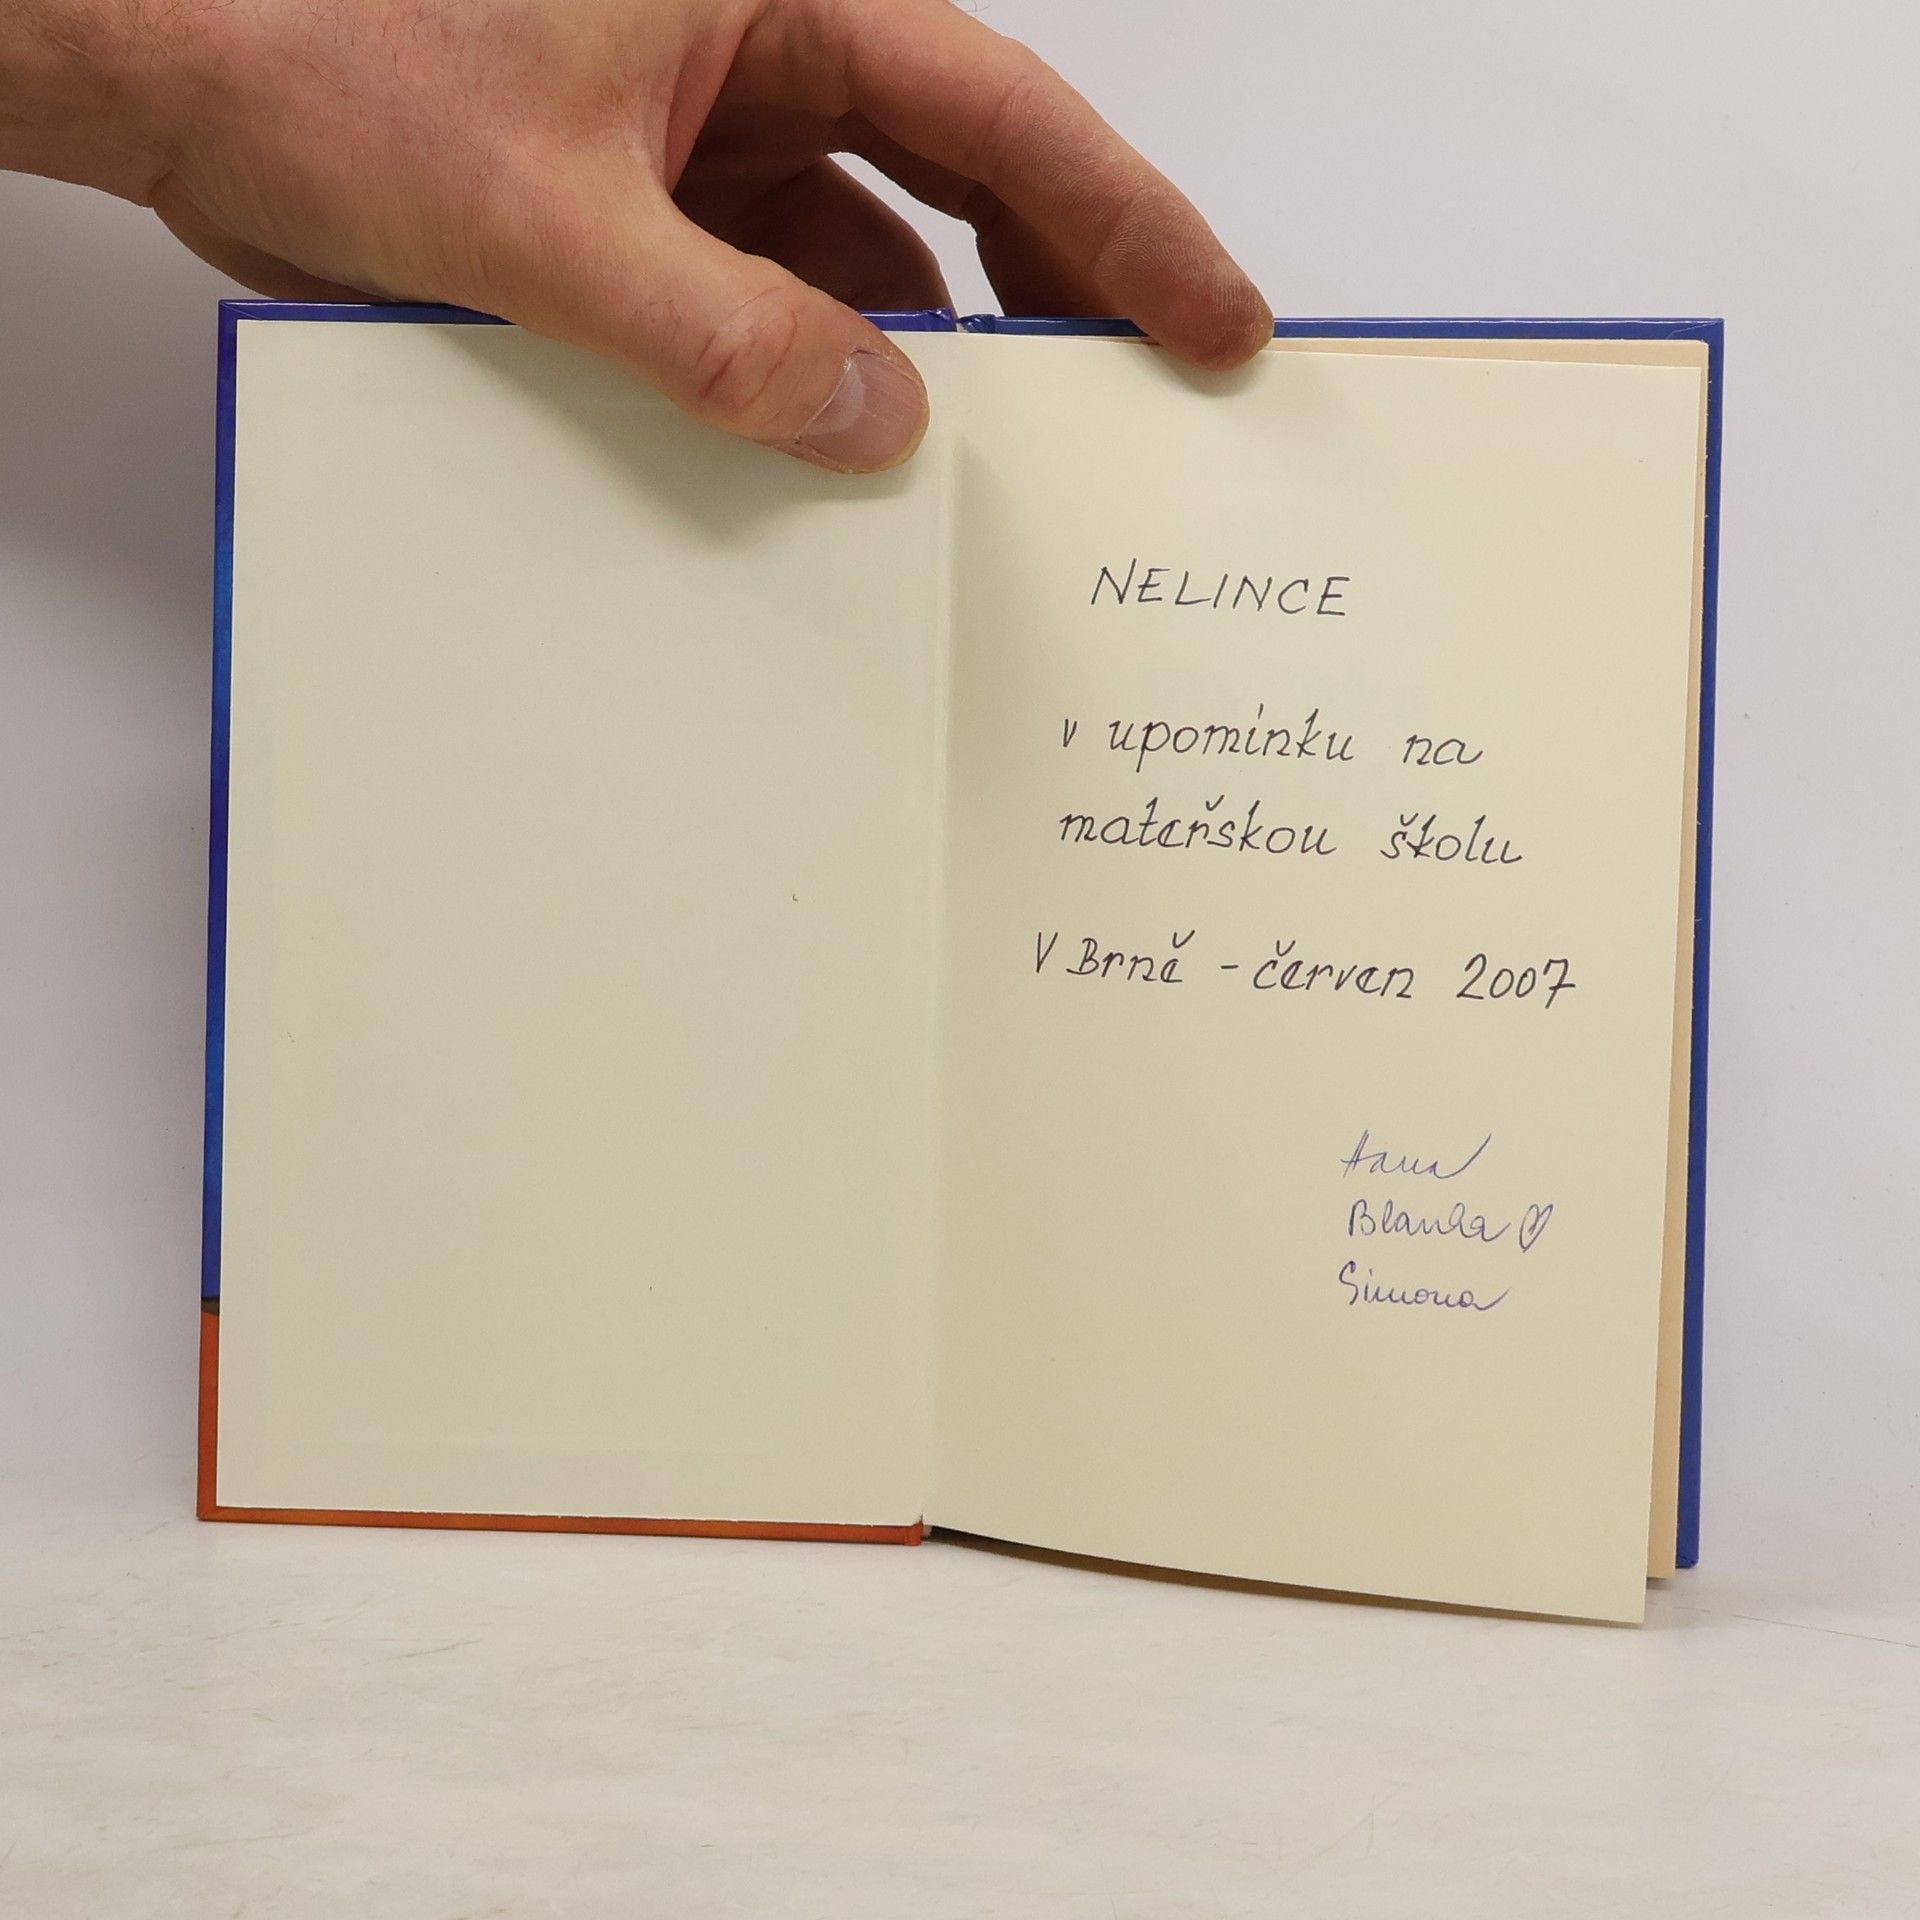 NELINCE
v upomínku na
mateřskou školu
V Brně - červen 2007
Hana
Blanka ♡
Simona